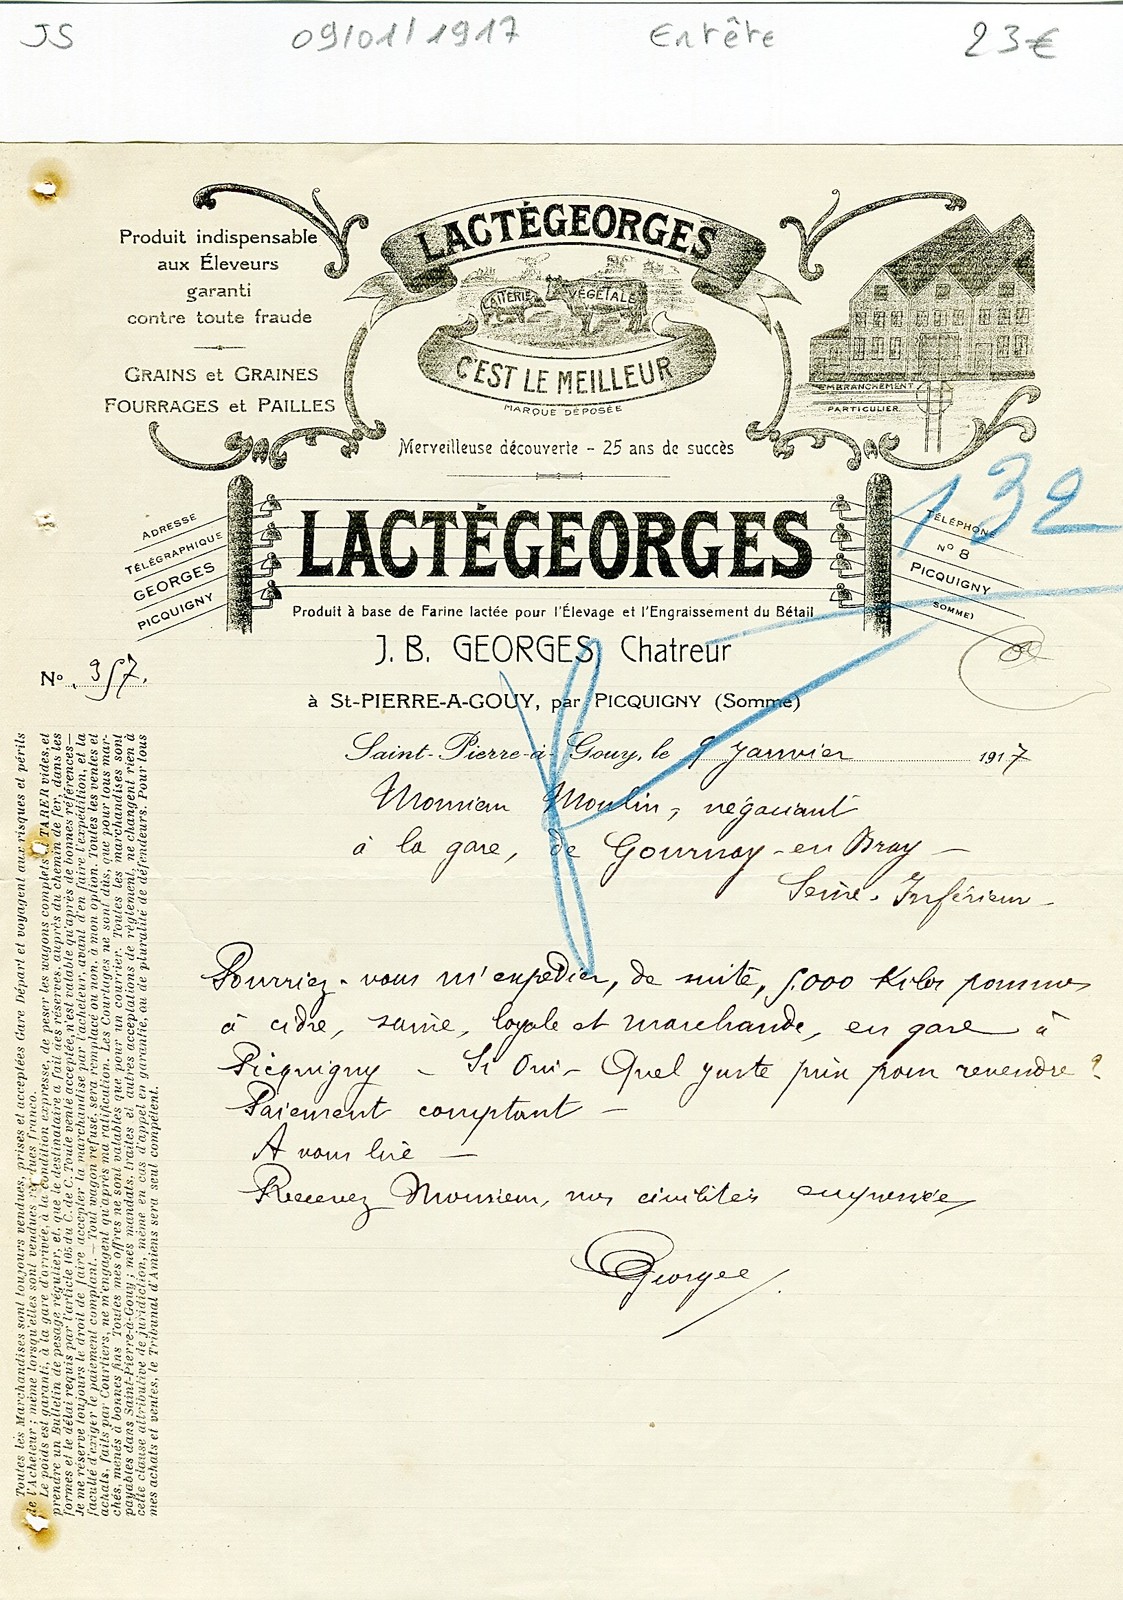 JS 09/01/1917 Entête 23€
Produit indispensable
aux Éleveurs
garanti
contre toute fraude
GRAINS et GRAINES
FOURRAGES et PAILLES
LACTÉGEORGES
LAITERIE VÉGÉTALE
C'EST LE MEILLEUR
MARQUE DÉPOSÉE
Merveilleuse découverte - 25 ans de succès
EMBRANCHEMENT
PARTICULIER
132
ADRESSE
TÉLÉGRAPHIQUE
GEORGES
PICQUIGNY
LACTÉGEORGES
TÉLÉPHONE
N° 8
PICQUIGNY
(SOMME)
Produit à base de Farine lactée pour l'Élevage et l'Engraissement du Bétail
J. B. GEORGES, Chatreur
N° 957.
à St-PIERRE-A-GOUY, par PICQUIGNY (Somme)
Saint-Pierre-à-Gouy, le 9 Janvier 1917
Monsieur Moulin, négociant
à la gare, de Gournay-en Bray -
Seine-Inférieure -
Pourriez-vous m'expédier, de suite, 5.000 Kilos pommes
à cidre, saine, loyale et marchande, en gare à
Picquigny - Si Oui - Quel juste prix pour revendre ?
Paiement comptant -
A vous lire -
Recevez Monsieur, mes civilités empressées
Georges
Toutes les Marchandises sont toujours vendues, prises et acceptées Gare Départ et voyagent aux risques et périls
de l'Acheteur ; même lorsqu'elles sont vendues rendues franco.
Le poids est garanti, à la gare d'arrivée, à la condition expresse, de peser les wagons complets, TARER vides, et
prendre un Bulletin de pesage régulier, et, que le destinataire a fait des réserves, auprès du chemin de fer, dans les
formes et le délai requis par l'article 105 du C. de C. Toute vente acceptée, n'est valable qu'après de bonnes références—
Je me réserve toujours le droit de faire accepter la marchandise par l'acheteur, avant d'en faire l'expédition, et la
faculté d'exiger le paiement comptant. — Tout wagon refusé, sera remplacé ou non, à mon option. Toutes les ventes et
achats, faits par Courtiers, ne m'engagent qu'après ma ratification. Les Courtages ne sont dûs, que pour tous mar-
chés, menés à bonnes fins Toutes mes offres ne sont valables que pour un courrier. Toutes les marchandises sont
payables dans Saint-Pierre-à-Gouy ; mes mandats, traites et autres acceptations de règlement, ne changent rien à
cette clause attributive de juridiction, même en cas d'appel en garantie, ou de pluralité de défendeurs. Pour tous
mes achats et ventes, le Tribunal d'Amiens sera seul compétent.